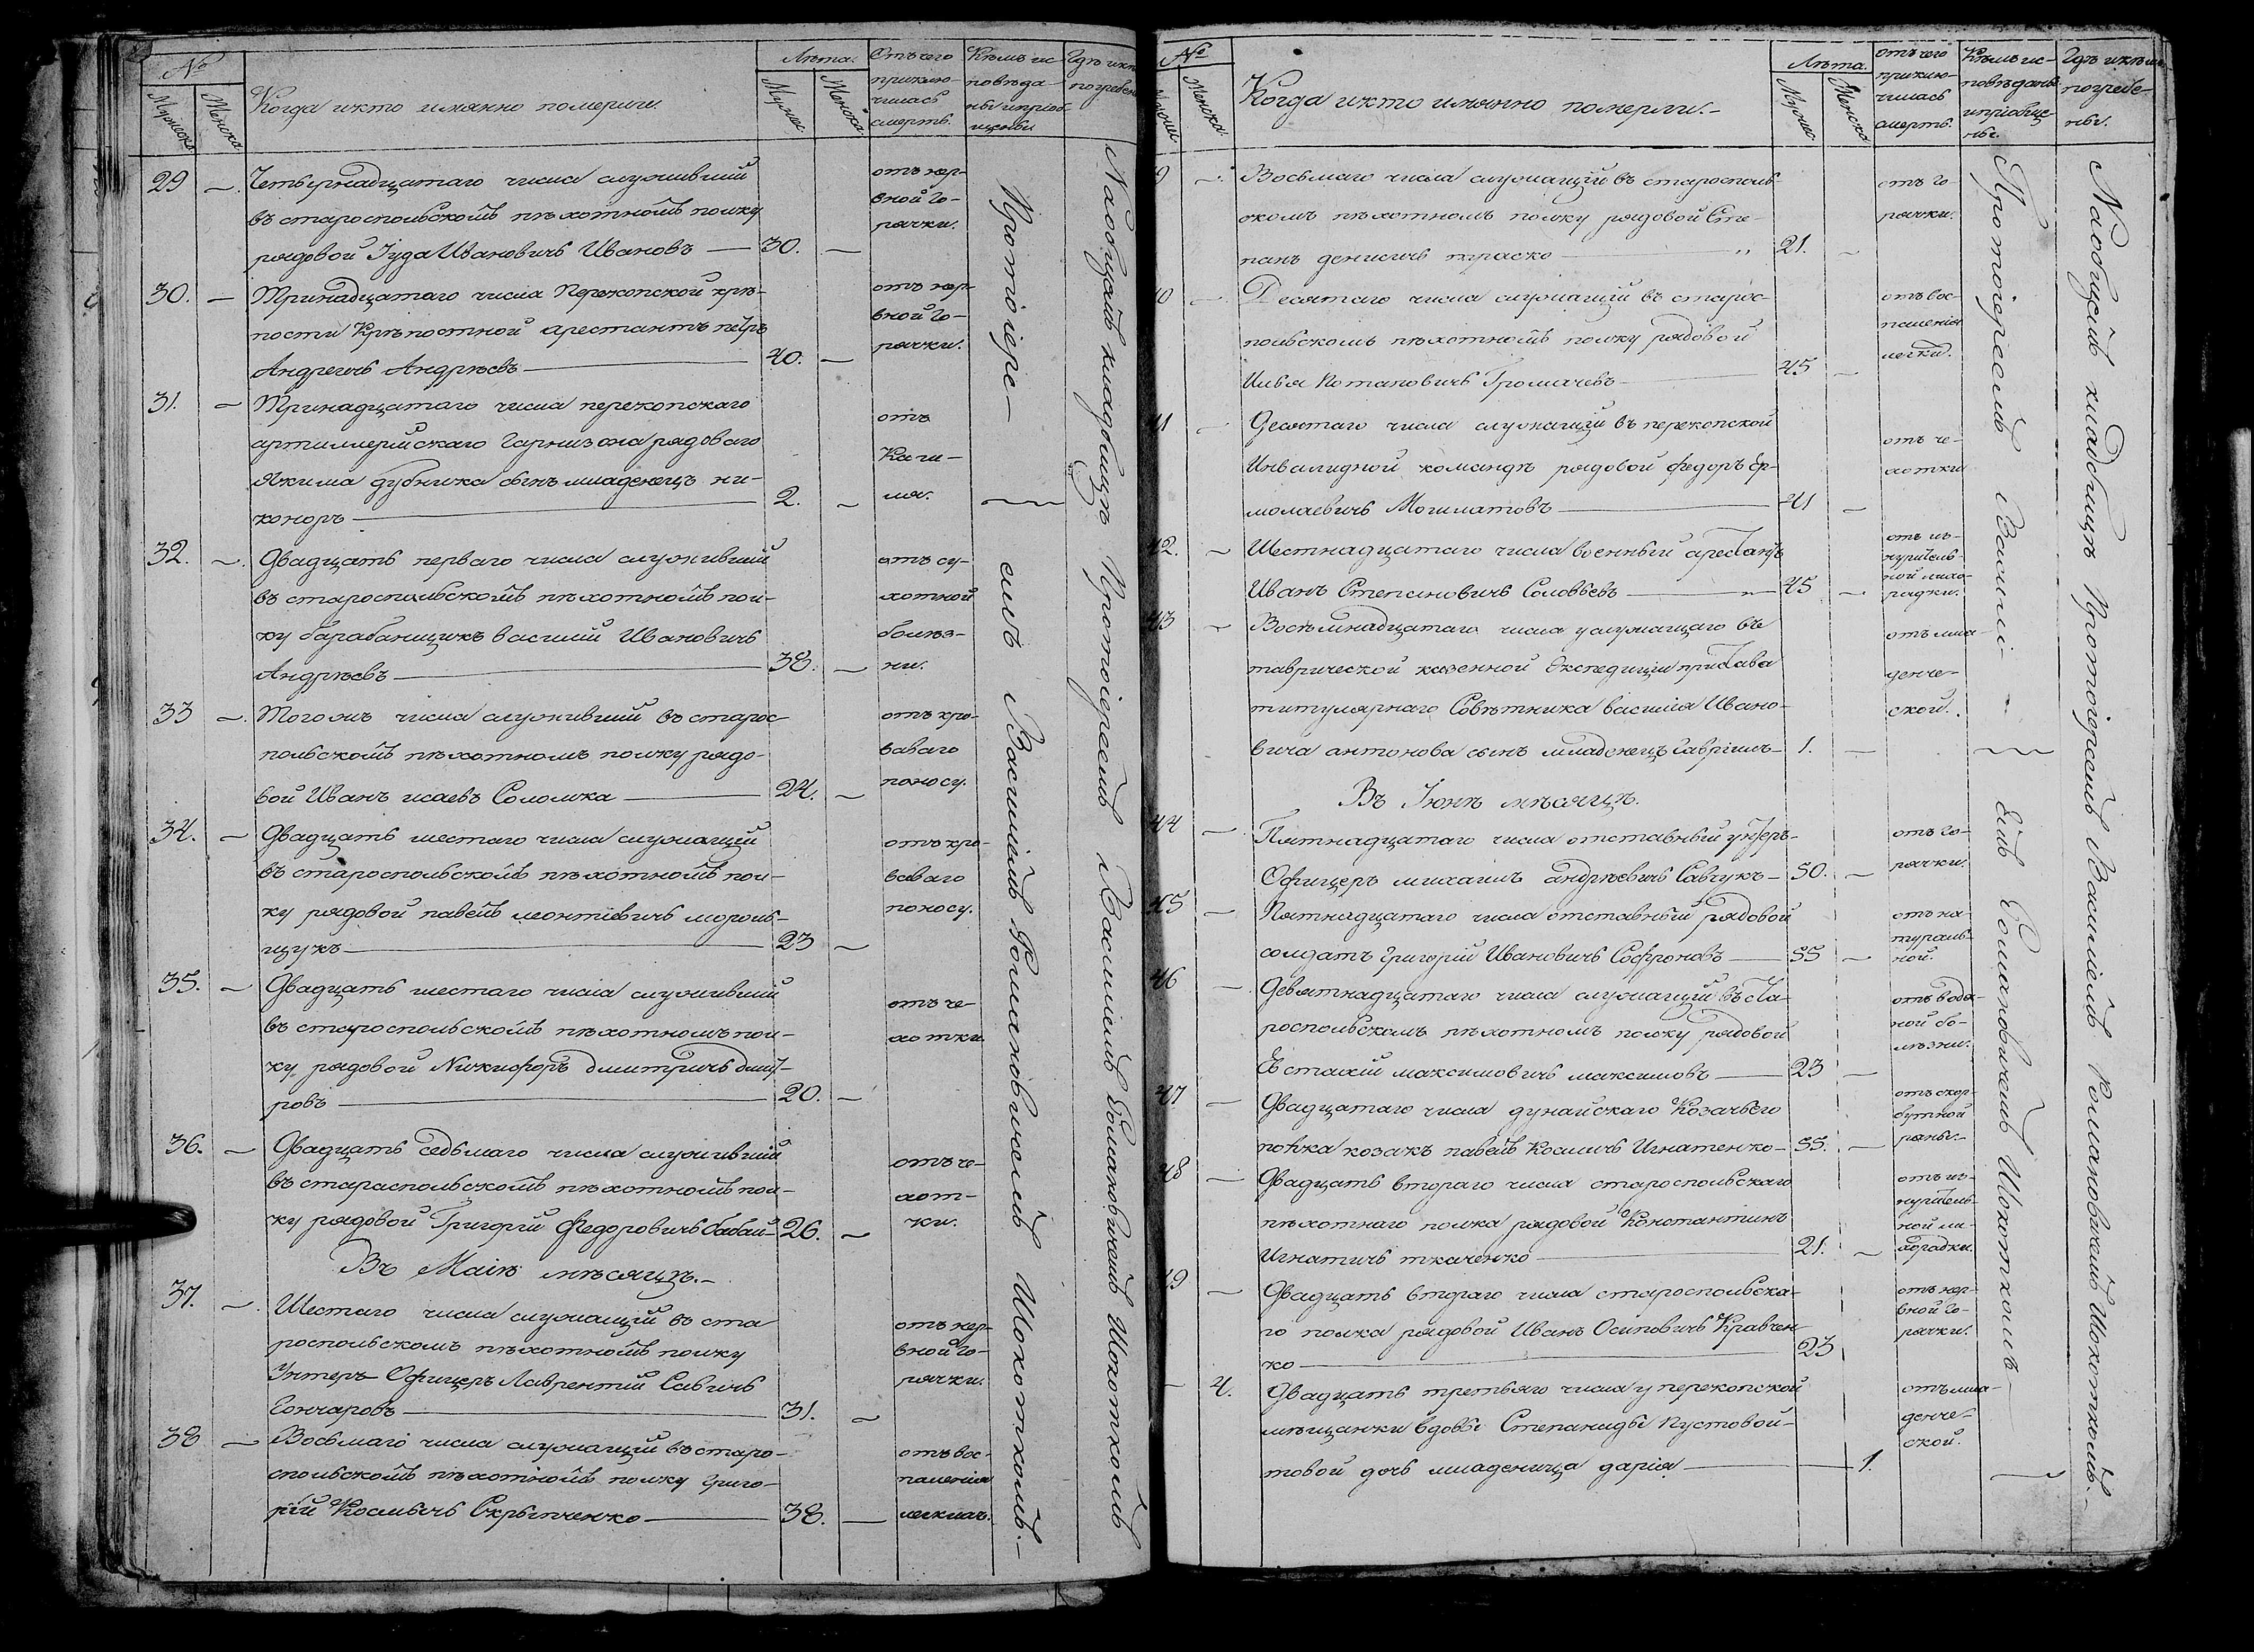 №
Мужеска
Женска
Когда и кто имянно померли.
Лѣта.
Мужес
Женска
Отъ чего
приклю-
чилась
смерть.
Кѣмъ ис-
повѣда-
ны и приоб-
щены
Гдѣ и кѣмъ
погребен
29 —. Четырнадцатаго числа служившій
въ староспольскомъ пѣхотномъ полку
рядовой Іуда Ивановичъ Ивановъ — 30. —
отъ нер-
вной го-
рячки.
30. — Тринадцатаго числа Перекопской крѣ-
пости Крѣпостной арестантъ петръ
Андреичъ Андрѣевъ — 40. —
отъ нер-
вной го-
рячки.
31. — Тринадцатаго числа перекопскаго
артиллерійскаго Гарнизона рядоваго
Якима дубника сынъ младенецъ ни-
коноръ — 2. —
отъ
Каш-
ля.
32. —. Двадцать перваго числа служившій
въ староспольскомъ пѣхотномъ пол-
ку барабанщикъ василій Ивановичъ
Андрѣевъ — 38. —
отъ су-
хотной
болѣз-
ни.
33 —. Того жъ числа служившій въ старос-
польскомъ пѣхотномъ полку рядо-
вой Иванъ исаевъ Соломка — 24. —
отъ кро-
ваваго
поносу.
34. — Двадцать шестаго числа служащій
въ староспольскомъ пѣхотномъ пол-
ку рядовой павелъ леонтіевичъ мороль-
щукъ — 23 —
отъ кро-
ваваго
поносу.
35. — Двадцать шестаго числа служившій
въ староспольскомъ пѣхотномъ пол-
ку рядовой Никифоръ дмитричъ дмит-
ровъ — 20. —
отъ че-
хотки.
36. — Двадцать седьмаго числа служившій
въ стараспольскомъ пѣхотномъ пол-
ку рядовой Григорій Федоровичъ бабай — 26. —
отъ че-
хот-
ки.
Въ Маіѣ мѣсяцѣ.—
37. —. Шестаго числа служащій въ ста
роспольскомъ пѣхотномъ полку
Унтеръ Офицеръ Лаврентій Савичъ
Гончаровъ — 31. —
отъ нер-
вной го-
рячки.
38 — Восьмаго числа служащій въ старо-
спольскомъ пѣхотномъ полку григо-
рій Космичъ Скрыпченко — 38. —
отъ вос-
паленія
легкихъ.
Протоіере-
емъ Василіемъ Романовичемъ Шокоткомъ.—
На общемъ кладбищѣ Протоіереемъ Василіемъ Романовичемъ Шокоткомъ
№
Женска
Когда и кто имянно померли.—
Лѣта
Мужес
Женска
отъ чего
приклю-
чилась
смерть.
Кѣмъ ис-
повѣданы
и приобще-
ны.
Гдѣ и кѣмъ
погребе-
ны.
9 —. Восьмаго числа служащій въ староспол-
скомъ пѣхотномъ полку рядовой Сте-
панъ денисичъ тараско — " 21. —
отъ го-
рячки.
10 —. Десятаго числа служащій въ старос-
польскомъ пѣхотномъ полку рядовой
Илья Потаповичъ Громачевъ — 45 —
отъ вос-
паленія
легки.
41 — Десятаго числа служащій въ перекопской
Инвалидной командѣ рядовой федоръ Ер-
молаевичъ Могиматовъ — 41 —
отъ че-
хотки
42. — Шестнадцатаго числа военный арестантъ
Иванъ Степановичъ Соловьевъ — " 45 —
отъ из-
нурительь-
ной лихо-
радки.
43 — Восемнадцатаго числа у служащаго въ
таврической казенной Экспедиціи пристава
титулярнаго Совѣтника василія Ивано-
вича антонова сынъ младенецъ Гавріилъ — 1. —
отъ мла-
денче-
ской.
Въ Іюнѣ мѣсяцѣ.
44 — Пятнадцатаго числа отставный унтеръ-
Офицеръ михаилъ андрѣевичъ Савчукъ — 50. —
отъ го-
рячки.
45 — Пятнадцатаго числа отставный рядовой
солдатъ Григорій Ивановичъ Софроновъ — 55 —
отъ на-
тураль-
ной.
46 — Девятнадцатаго числа служащій въ ста-
роспольскомъ пѣхотномъ полку рядовой
Евстахій максимовичъ максимовъ — 23 —
отъ водя-
ной бо-
лѣзни.
47 — Двадцатаго числа дунайскаго Козачьего
полка козакъ павелъ Космичъ Игнатенко — 55. —
отъ скор-
бутной
раны.—
48 — Двадцать втораго числа староспольскаго
пѣхотнаго полка рядовой Константинъ
Игнатичъ ткаченко — 21. —
отъ из-
нуритель-
ной ли-
хорадки.
49 — Двадцать втораго числа староспольска-
го полка рядовой Иванъ Осиповичъ Кравчен-
ко — 23
отъ нер-
вной го-
рячки.
— 4. Двадцать третьяго числа у перекопской
мѣщанки вдовы Степаниды Пустовой-
товой дочь младеница дарія — 1.
отъ мла-
денче-
ской.
Протоіереемъ Василі-
емъ Романовичемъ Шокоткомъ—
На общемъ кладбищѣ Протоіереемъ Василіемъ Романовичемъ Шокоткомъ.—